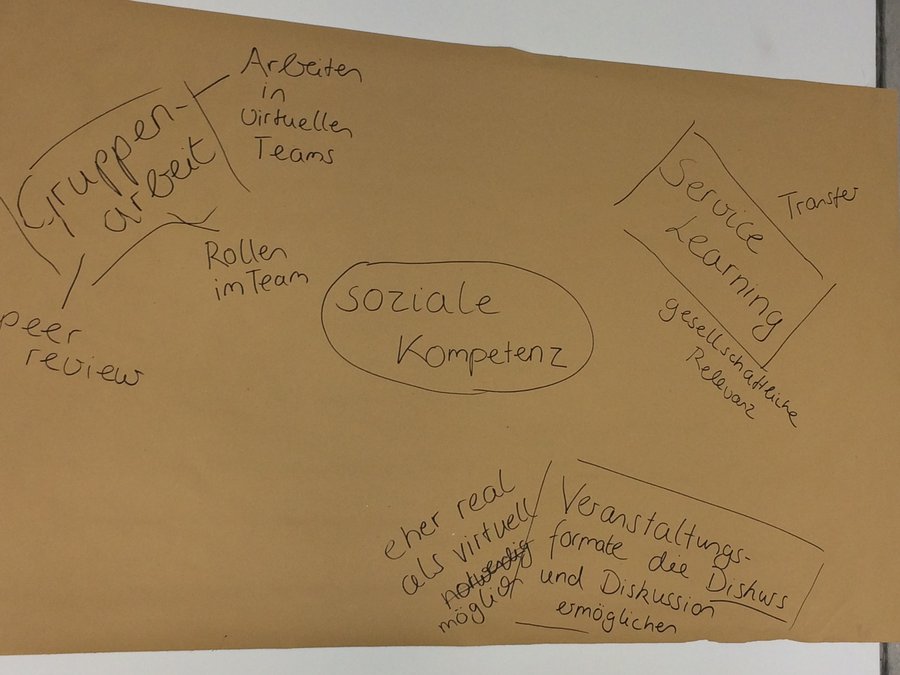 Gruppen-
arbeit
Arbeiten
in
virtuellen
Teams
Rollen
im Team
peer
review
soziale
Kompetenz
Service
Learning
Transfer
gesellschaftliche
Relevanz
eher real
als virtuell
notwendig
möglich
Veranstaltungs-
formate die Diskurs
und Diskussion
ermöglichen